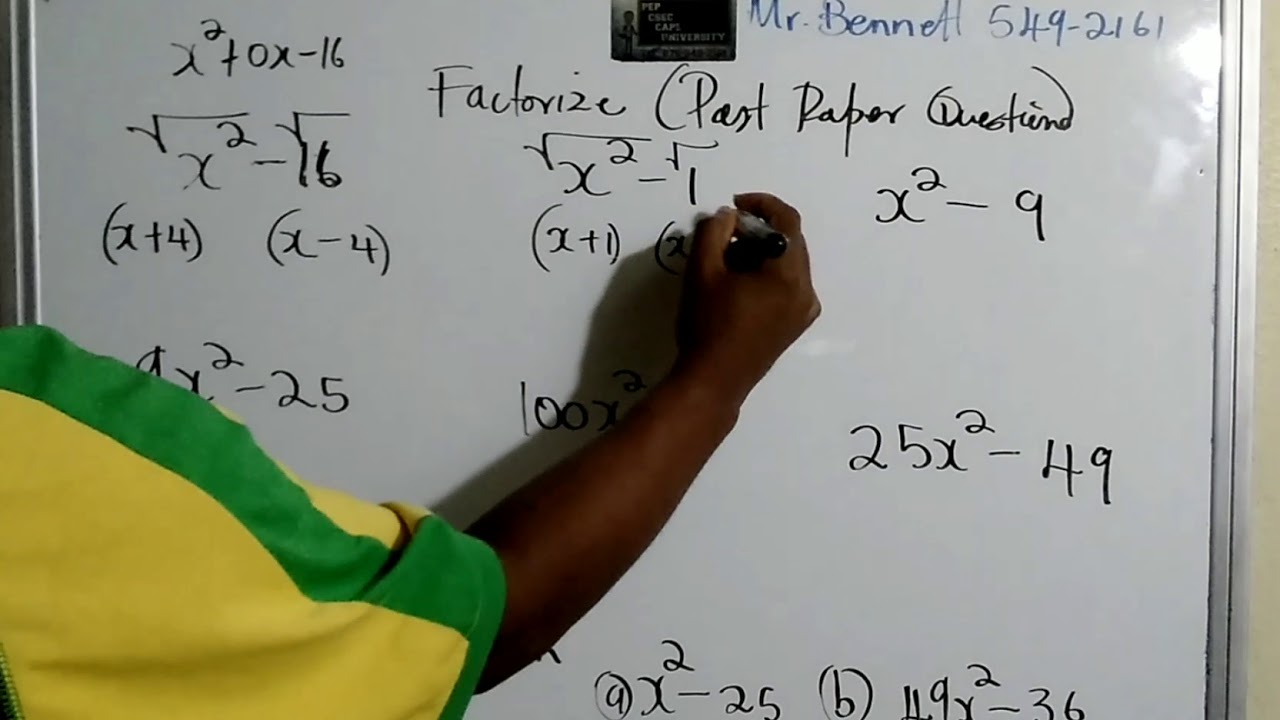 PEP
CSEC
CAPE
UNIVERSITY
Mr. Bennett 549-2161
x²+0x-16
Factorize (Past Paper Questions)
√x² - √16
√x² - √1
x² - 9
(x+4) (x-4)
(x+1) (x
9x² - 25
100x²
25x² - 49
(a) x² - 25 (b) 49x² - 36